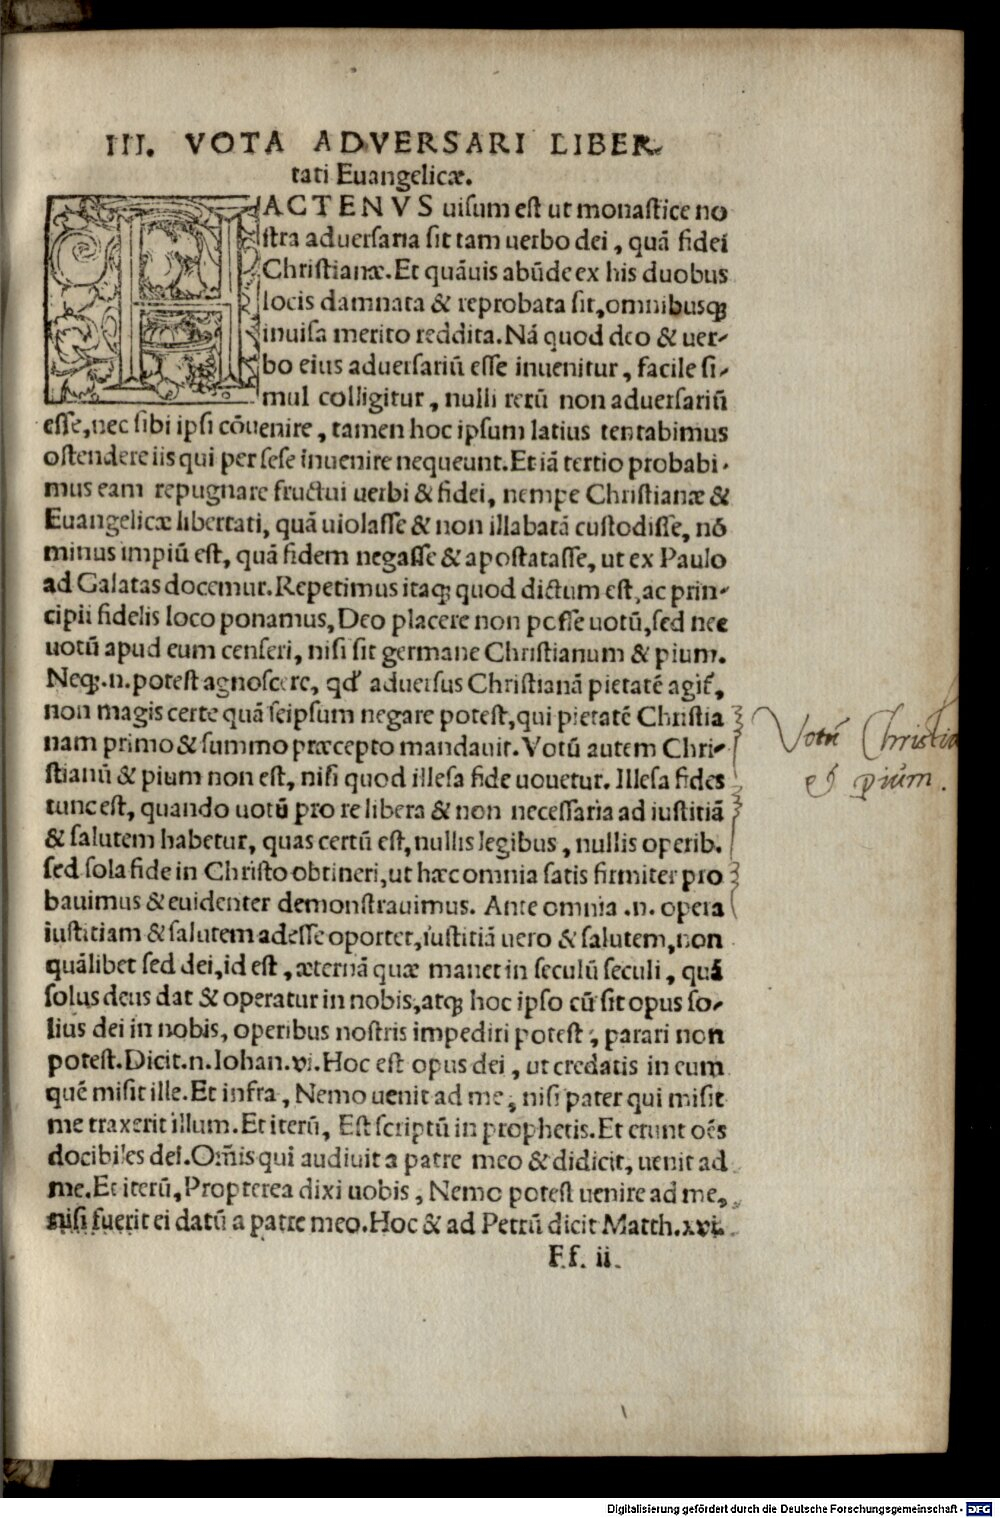 III. VOTA ADVERSARI LIBER-
tati Euangelicæ.
HACTENVS uisum est ut monastice no
stra aduersaria sit tam uerbo dei, quã fidei
Christianæ. Et quãuis abũde ex his duobus
locis damnata & reprobata sit, omnibusq;
inuisa merito reddita. Nã quod deo & uer-
bo eius aduersariũ esse inuenitur, facile si-
mul colligitur, nulli rerũ non aduersariũ
esse, nec sibi ipsi cõuenire, tamen hoc ipsum latius tentabimus
ostendere iis qui per sese inuenire nequeunt. Et iã tertio probabi-
mus eam repugnare fructui uerbi & fidei, nempe Christianæ &
Euangelicæ libertati, quã uiolasse & non illabatã custodisse, nõ
minus impiũ est, quã fidem negasse & apostatasse, ut ex Paulo
ad Galatas docemur. Repetimus itaq; quod dictum est, ac prin-
cipii fidelis loco ponamus, Deo placere non posse uotũ, sed nec
uotũ apud eum censeri, nisi sit germane Christianum & pium.
Neq;.n. potest agnoscere, qď aduersus Christianã pietatẽ agit̃,
non magis certe quã seipsum negare potest, qui pietatẽ Christia
nam primo & summo præcepto mandauit. Votũ autem Chri-
stianũ & pium non est, nisi quod illesa fide uouetur. Illesa fides
tunc est, quando uotũ pro re libera & non necessaria ad iustitiã
& salutem habetur, quas certũ est, nullis legibus, nullis operib.
sed sola fide in Christo obtineri, ut hæc omnia satis firmiter pro
bauimus & euidenter demonstrauimus. Ante omnia .n. opera
iustitiam & salutem adesse oportet, iustitiã uero & salutem, non
quãlibet sed dei, id est, æternã quæ manet in seculũ seculi, quã
solus deus dat & operatur in nobis, atq; hoc ipso cũ sit opus so-
lius dei in nobis, operibus nostris impediri potest, parari non
potest. Dicit.n. Iohan.vi. Hoc est opus dei, ut credatis in eum
quẽ misit ille. Et infra, Nemo uenit ad me, nisi pater qui misit
me traxerit illum. Et iterũ, Est scriptũ in prophetis. Et erunt oẽs
docibiles dei. Om̃is qui audiuit a patre meo & didicit, uenit ad
me. Et iterũ, Propterea dixi uobis, Nemo potest uenire ad me,
nisi fuerit ei datũ a patre meo. Hoc & ad Petrũ dicit Matth.xvi.
Ff. ii.
Votũ Christia
& pium.
Digitalisierung gefördert durch die Deutsche Forschungsgemeinschaft - DFG